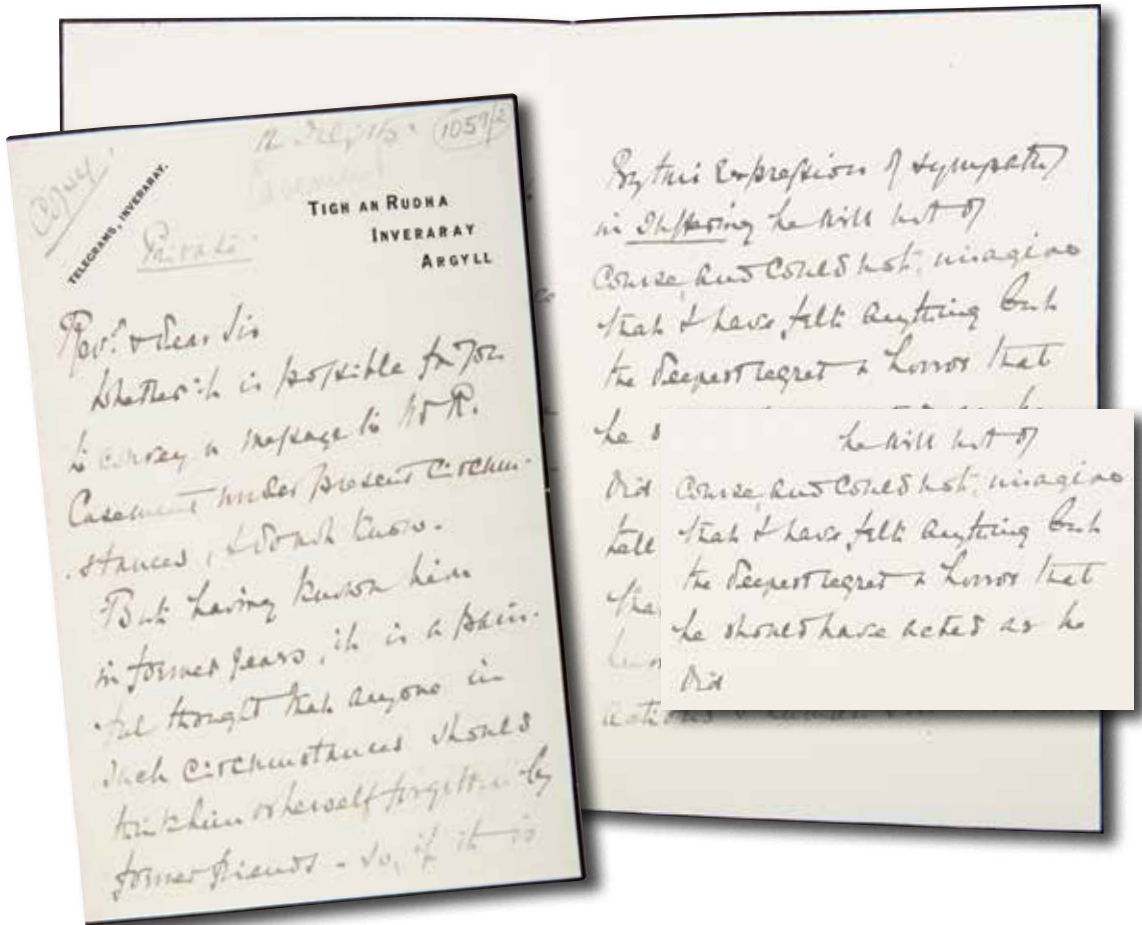 Copy.
12 July 16.
1059/2
Casement
TELEGRAMS, INVERARAY.
Private
TIGH AN RUDHA
INVERARAY
ARGYLL
Revd & dear Sir
Whether it is possible for you
to convey a message to Sir R.
Casement under present circum-
stances, I do not know.
But having known him
in former years, it is a pain-
ful thought that anyone in
such circumstances should
think him or herself forgotten by
former friends - So, if it is
By this expression of sympathy
in suffering he will not of
course, and could not, imagine
that I have felt anything but
the deepest regret & horror that
he
Did
tell
that
actions & human
he will not of
course, and could not, imagine
that I have felt anything but
the deepest regret & horror that
he should have acted as he
Did